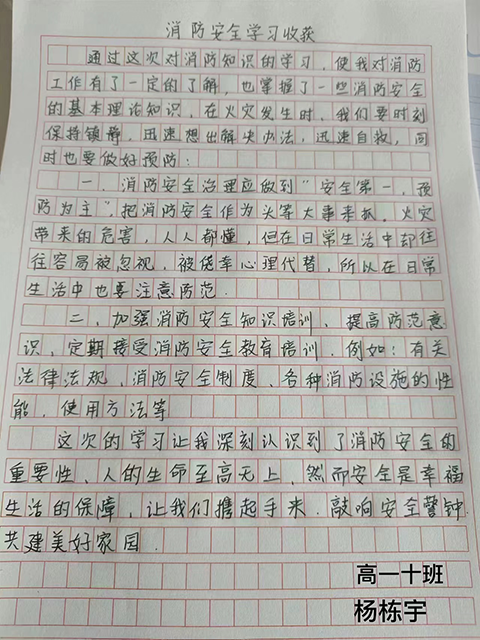 消防安全学习收获
通过这次对消防知识的学习，使我对消防
工作有了一定的了解，也掌握了一些消防安全
的基本理论知识，在火灾发生时，我们要时刻
保持镇静，迅速想出解决办法，迅速自救，同
时也要做好预防：
一、消防安全治理应做到“安全第一，预
防为主”，把消防安全作为头等大事来抓，火灾
带来的危害，人人都懂，但在日常生活中却往
往容易被忽视，被侥幸心理代替，所以在日常
生活中也要注意防范.
二、加强消防安全知识培训、提高防范意
识，定期接受消防安全教育培训，例如：有关
法律法规、消防安全制度、各种消防设施的性
能，使用方法等
这次的学习让我深刻认识到了消防安全的
重要性，人的生命至高无上，然而安全是幸福
生活的保障，让我们携起手来.敲响安全警钟.
共建美好家园.
高一十班
杨栋宇